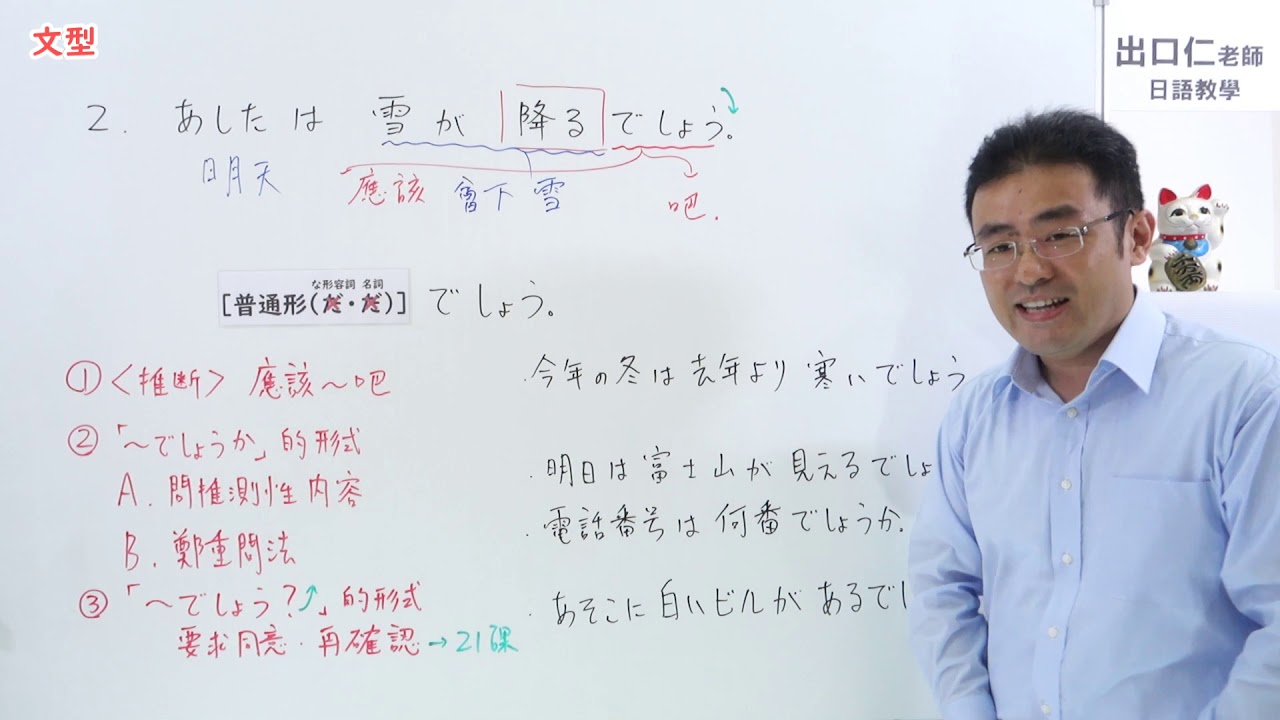 文型
出口仁老師
日語教學
2. あしたは 雪が 降るでしょう。
明天 應該 會下雪 吧.
な形容詞 名詞
[普通形(だ・だ)] でしょう。
①<推断> 應該~吧
・今年の冬は去年より 寒いでしょう
②「~でしょうか」的形式
A. 問推測性内容
・明日は富士山が 見えるでしょ
B. 鄭重問法
・電話番号は 何番でしょうか.
③「~でしょう?」的形式
・あそこに 白いビルが あるでし
要求同意・再確認→21課